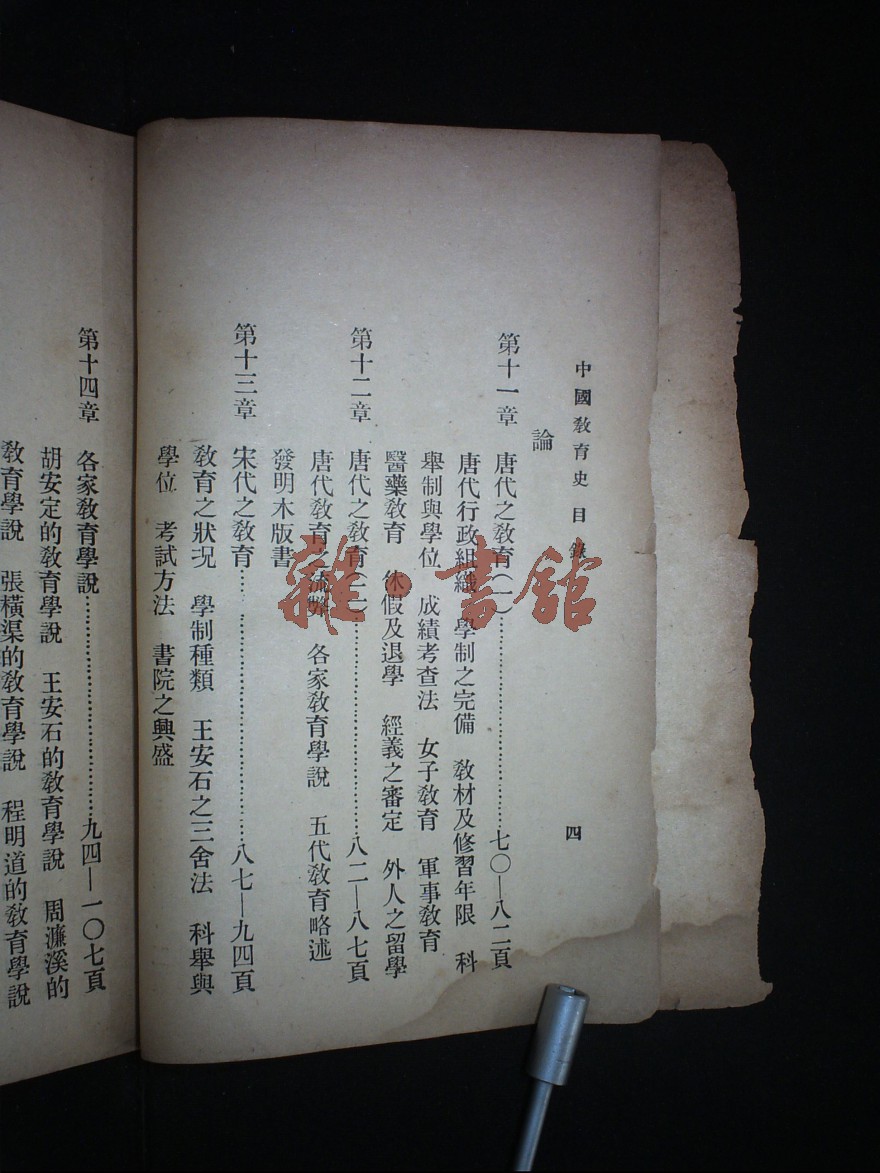 中國教育史 目錄
四
論
第十一章 唐代之教育(一)……七〇—八二頁
唐代行政組織 學制之完備 教材及修習年限 科
舉制與學位 成績考查法 女子教育 軍事教育
醫藥教育 休假及退學 經義之審定 外人之留學
第十二章 唐代之教育(二)……八二—八七頁
唐代教育之流弊 各家教育學說 五代教育略述
發明木版書
第十三章 宋代之教育……八七—九四頁
教育之狀況 學制種類 王安石之三舍法 科舉與
學位 考試方法 書院之興盛
第十四章 各家教育學說……九四—一〇七頁
胡安定的教育學說 王安石的教育學說 周濂溪的
教育學說 張橫渠的教育學說 程明道的教育學說
雜·書館